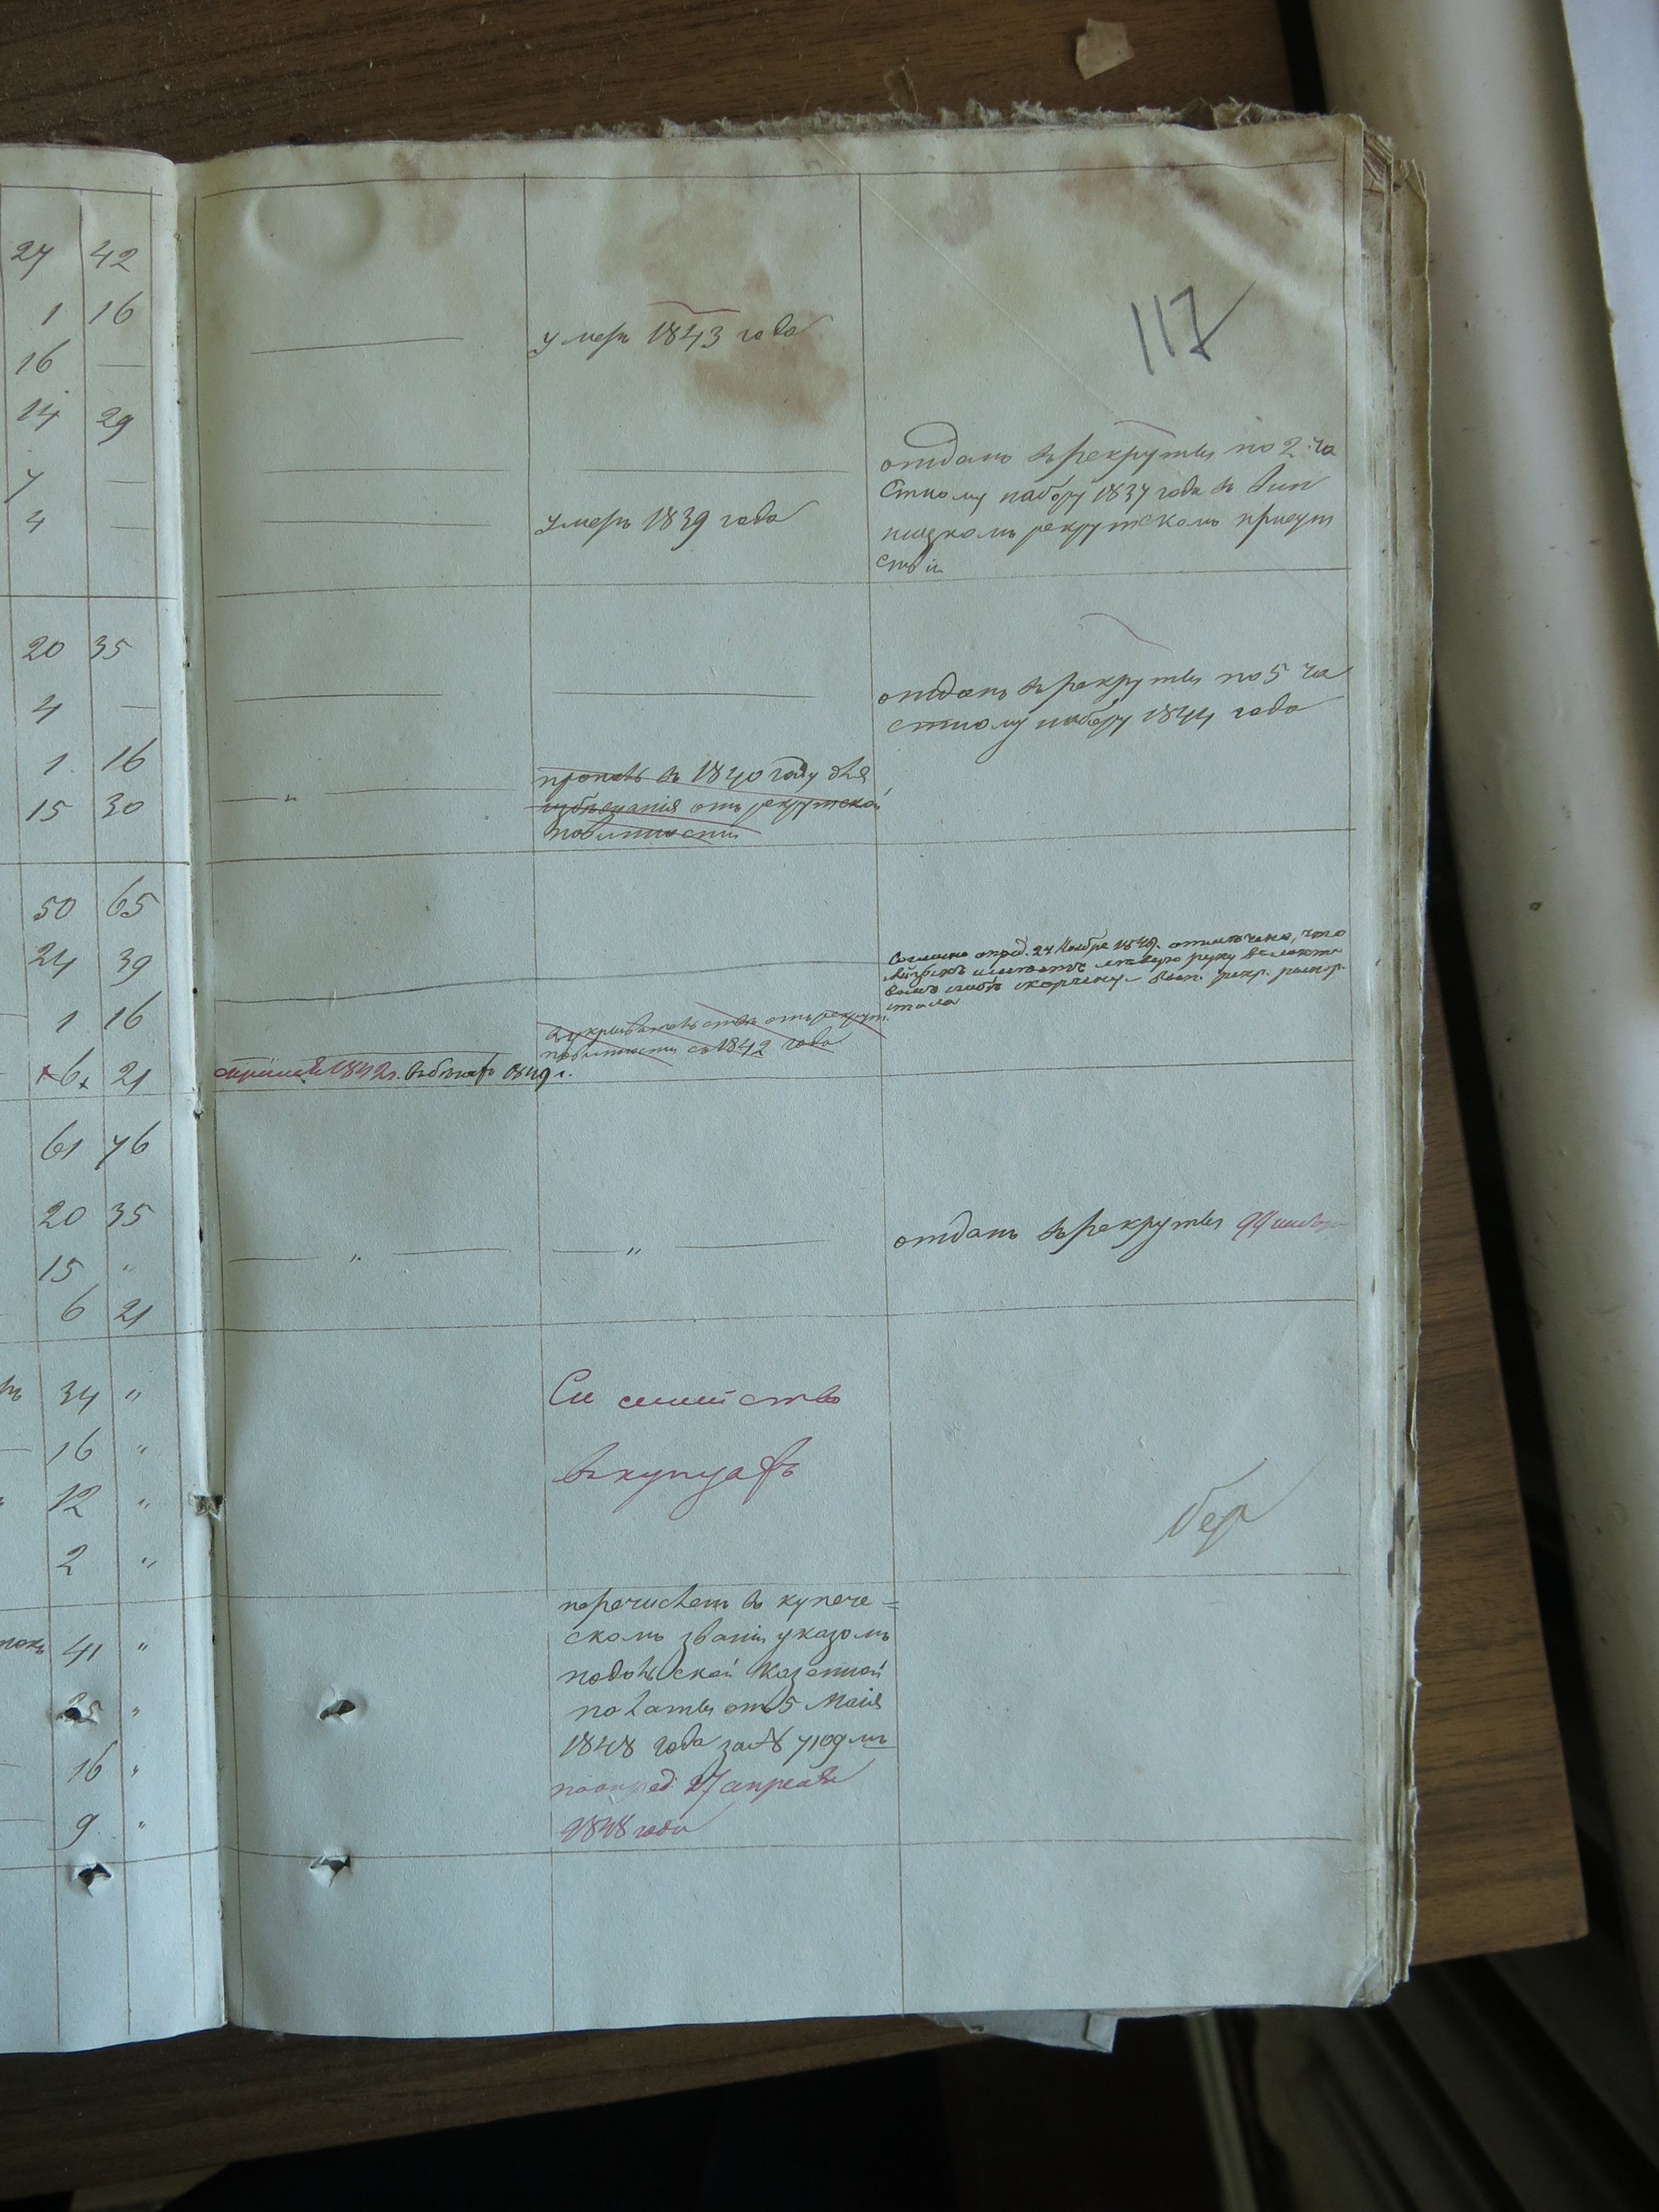 117
27 42
1 16
умеръ 1843 года
16 —
14 29
отданъ въ рекруты по 2 ча
7 —
стному набору 1837 года въ Вин
4 —
умеръ 1839 года
ницкомъ рекрутскомъ присут
ствіи
20 35
отданъ въ рекруты по 5 ча
4 —
стному набору 1844 года
1 16
пропалъ въ 1840 году для
15 30
— „
избѣжанія отъ рекрутской
повинности
50 65
24 39
Согласно опред. 24 Ноября 1849. отмѣчено, что
имѣетъ лѣвую руку
рекр.
1 16
отъ рекрут.
повинности съ 1842 года
6 21
1842 г. 1849 г.
61 76
20 35
отданъ въ рекруты
— „ — — „ —
15 „
6 21
34 „
Сіе семейство
16 „
въ купцахъ
12 „
2 „
перечисленъ въ купече=
скомъ званіи указомъ
41 „
подольской Казенной
25 „
палаты отъ 5 Маія
1848 года за №
16 „
по опред. 27 апреля
9 „
1848 года